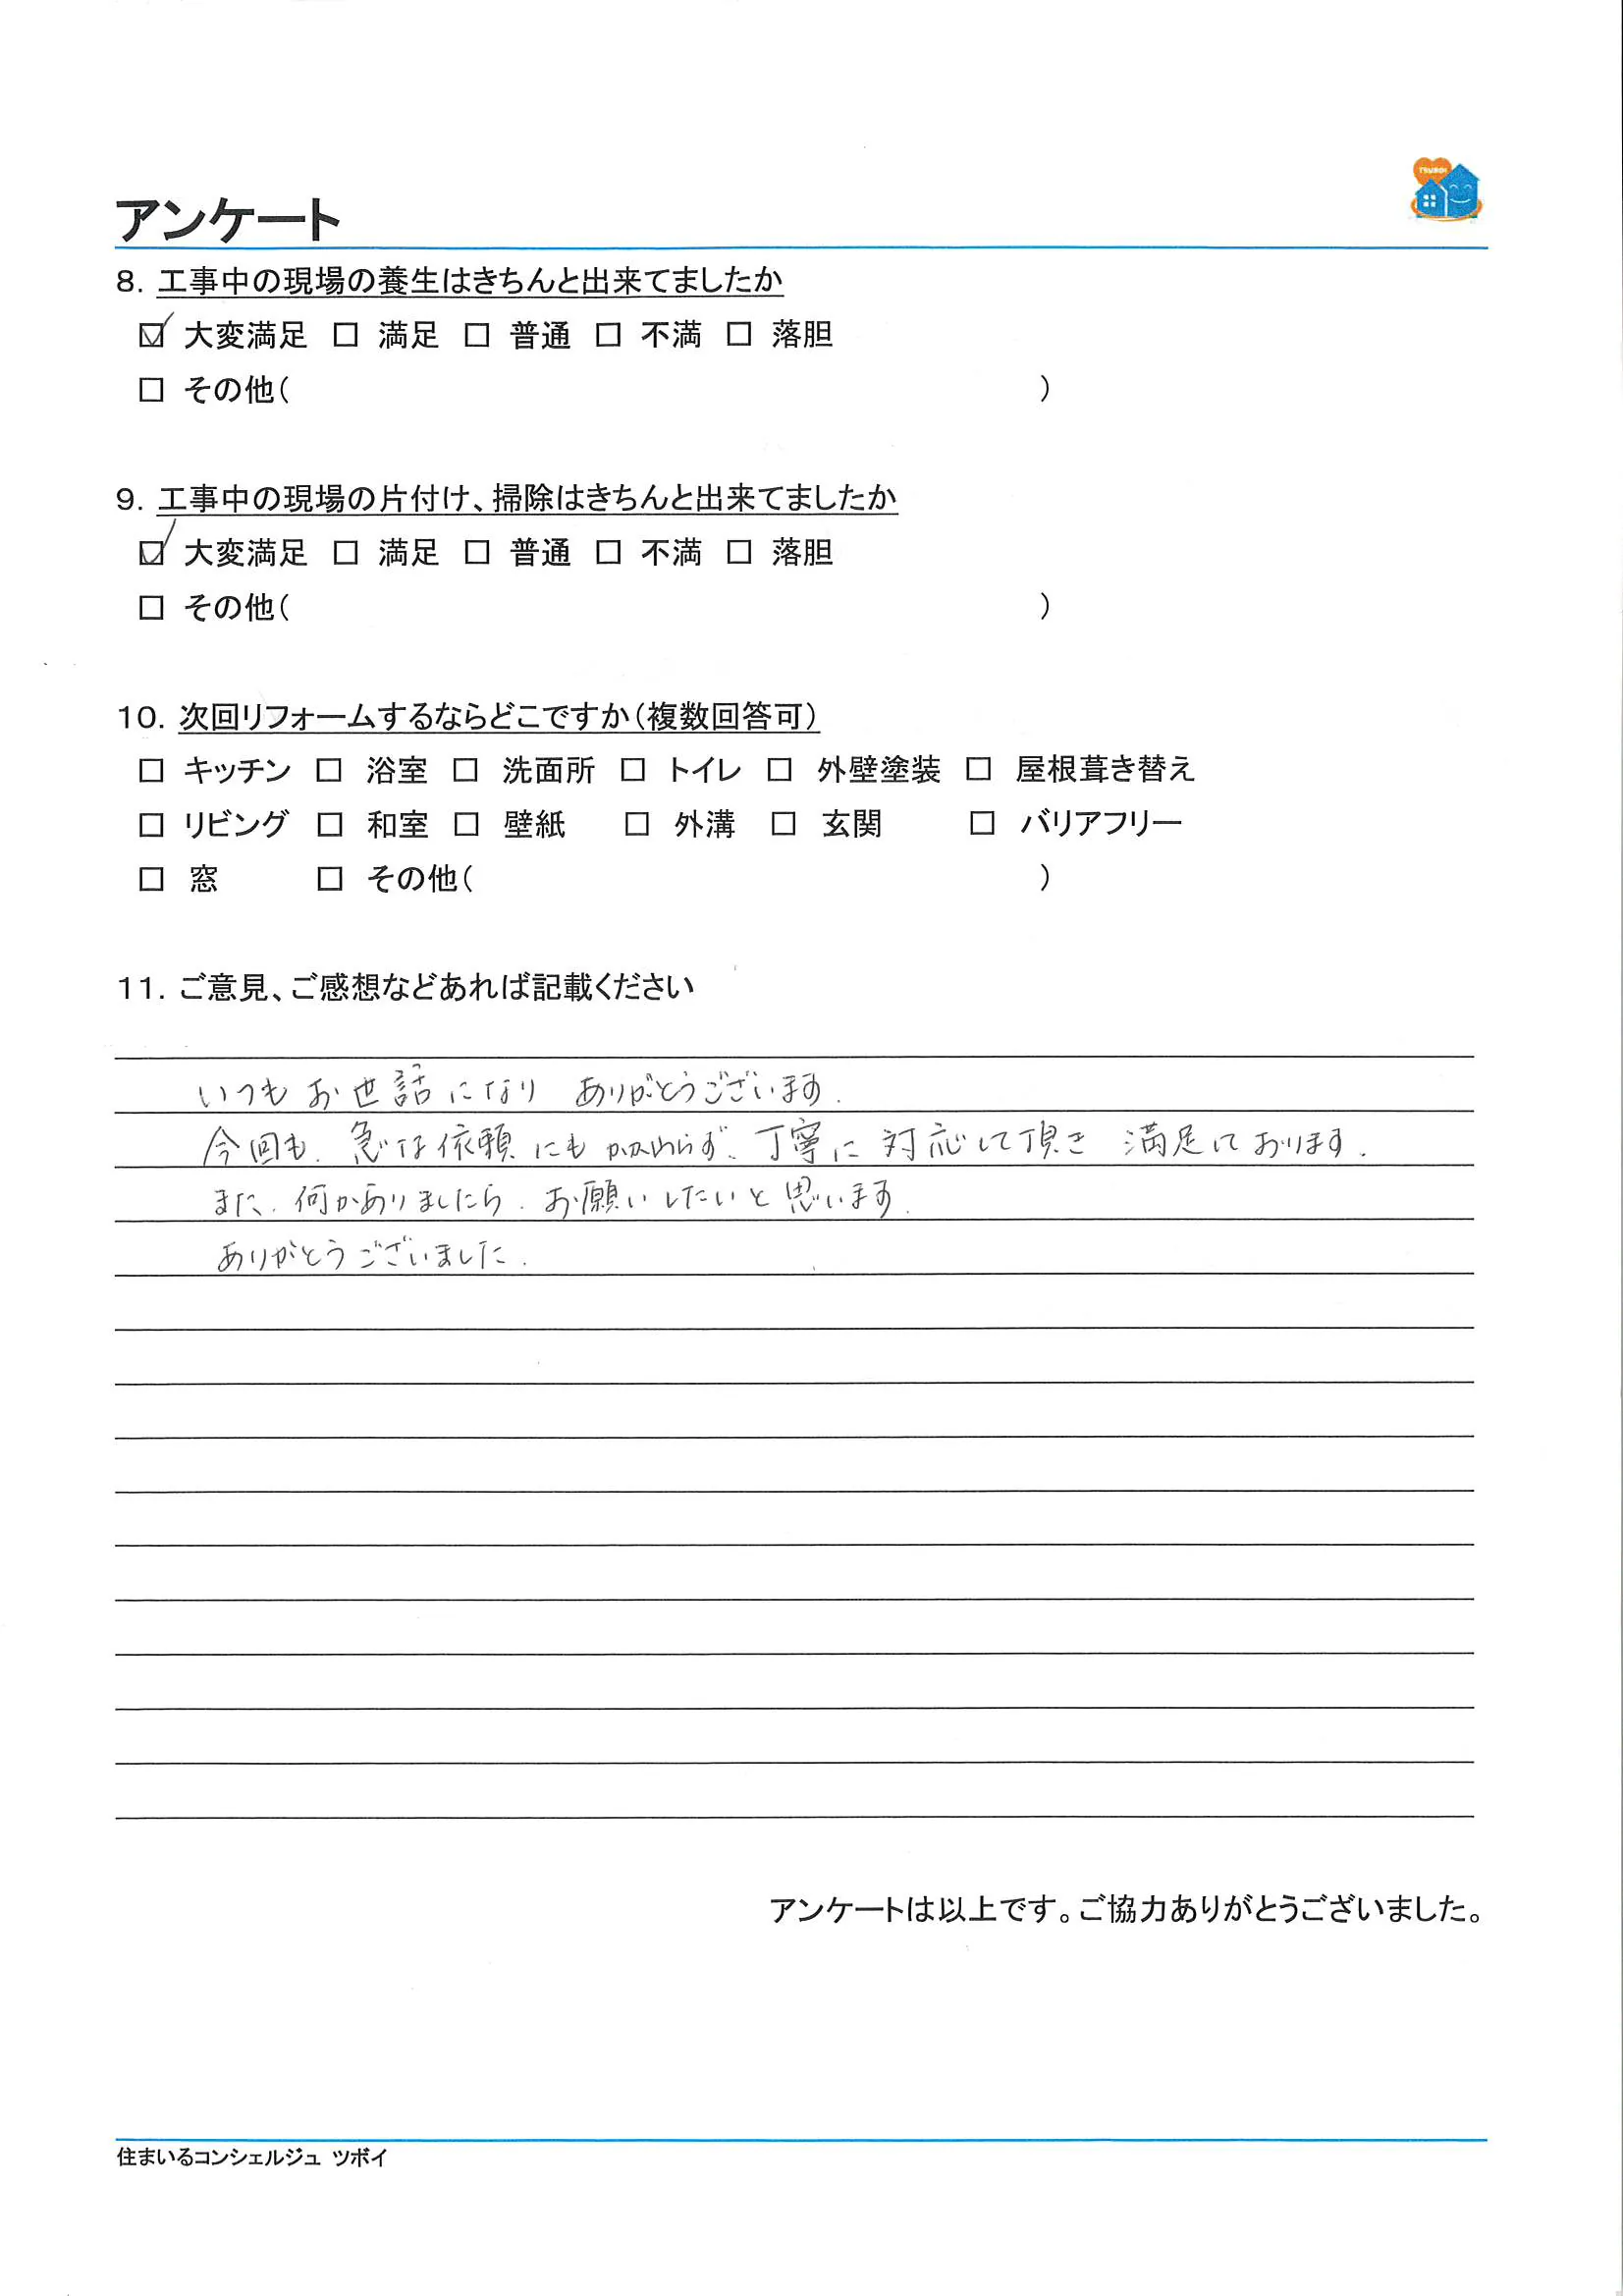 TSUBOI
アンケート
8. 工事中の現場の養生はきちんと出来てましたか
☑ 大変満足 □ 満足 □ 普通 □ 不満 □ 落胆
□ その他( )
9. 工事中の現場の片付け、掃除はきちんと出来てましたか
☑ 大変満足 □ 満足 □ 普通 □ 不満 □ 落胆
□ その他( )
10. 次回リフォームするならどこですか(複数回答可)
□ キッチン □ 浴室 □ 洗面所 □ トイレ □ 外壁塗装 □ 屋根葺き替え
□ リビング □ 和室 □ 壁紙 □ 外溝 □ 玄関 □ バリアフリー
□ 窓 □ その他( )
11. ご意見、ご感想などあれば記載ください
いつもお世話になり ありがとうございます.
今回も、急な依頼にもかかわらず、丁寧に対応して頂き 満足しております.
また、何かありましたら、お願いしたいと思います.
ありがとうございました.
アンケートは以上です。ご協力ありがとうございました。
住まいるコンシェルジュ ツボイ